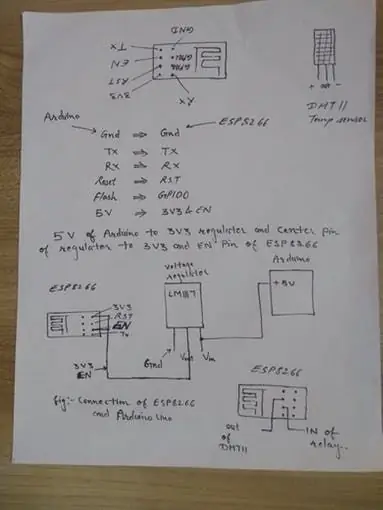 GND
TX
EN
GPIO2
RST
GPIO0
3V3
RX
+ out -
DHT11
Temp sensor
Arduino
ESP8266
Gnd ⇒ Gnd
Tx ⇒ TX
Rx ⇒ RX
Reset ⇒ RST
Flash ⇒ GPIO0
5V ⇒ 3V3 & EN
5V of Arduino to 3V3 regulator and Center pin
of regulator to 3V3 and EN Pin of ESP8266
Voltage
regulator
Arduino
ESP8266
LM1117
+5V
3V3
RST
EN
Tx
3V3
EN
Gnd
Vout
Vin
ESP8266
fig:- Connection of ESP8266
and Arduino Uno
out
of
DHT11
IN of
relay..